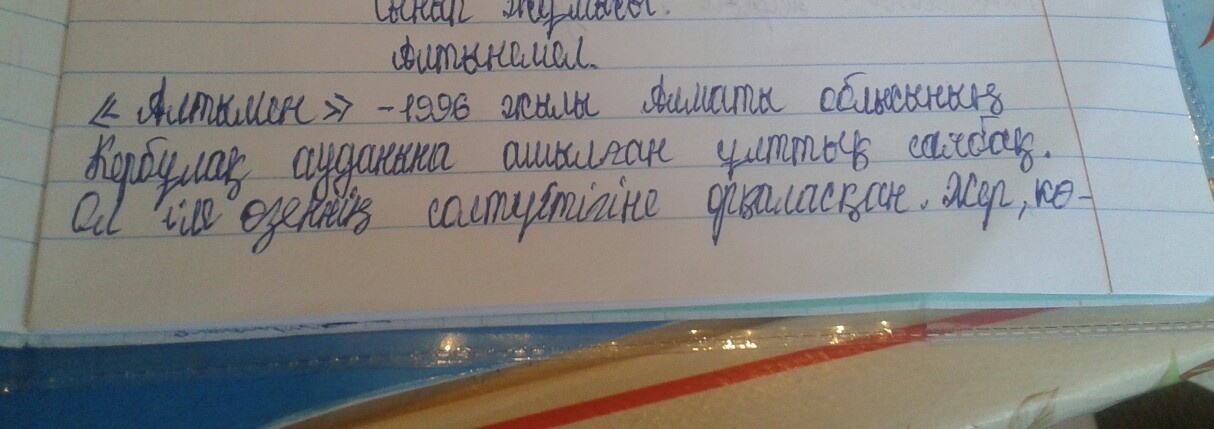 Сынып жұмысы.
Алтынемел.
« Алтымен » -1996 жылы Алматы облысының
Кербұлақ ауданына ашылған ұлттық саябақ.
Ол іле өзеннің солтүстігіне орналасқан. Жер, кө-